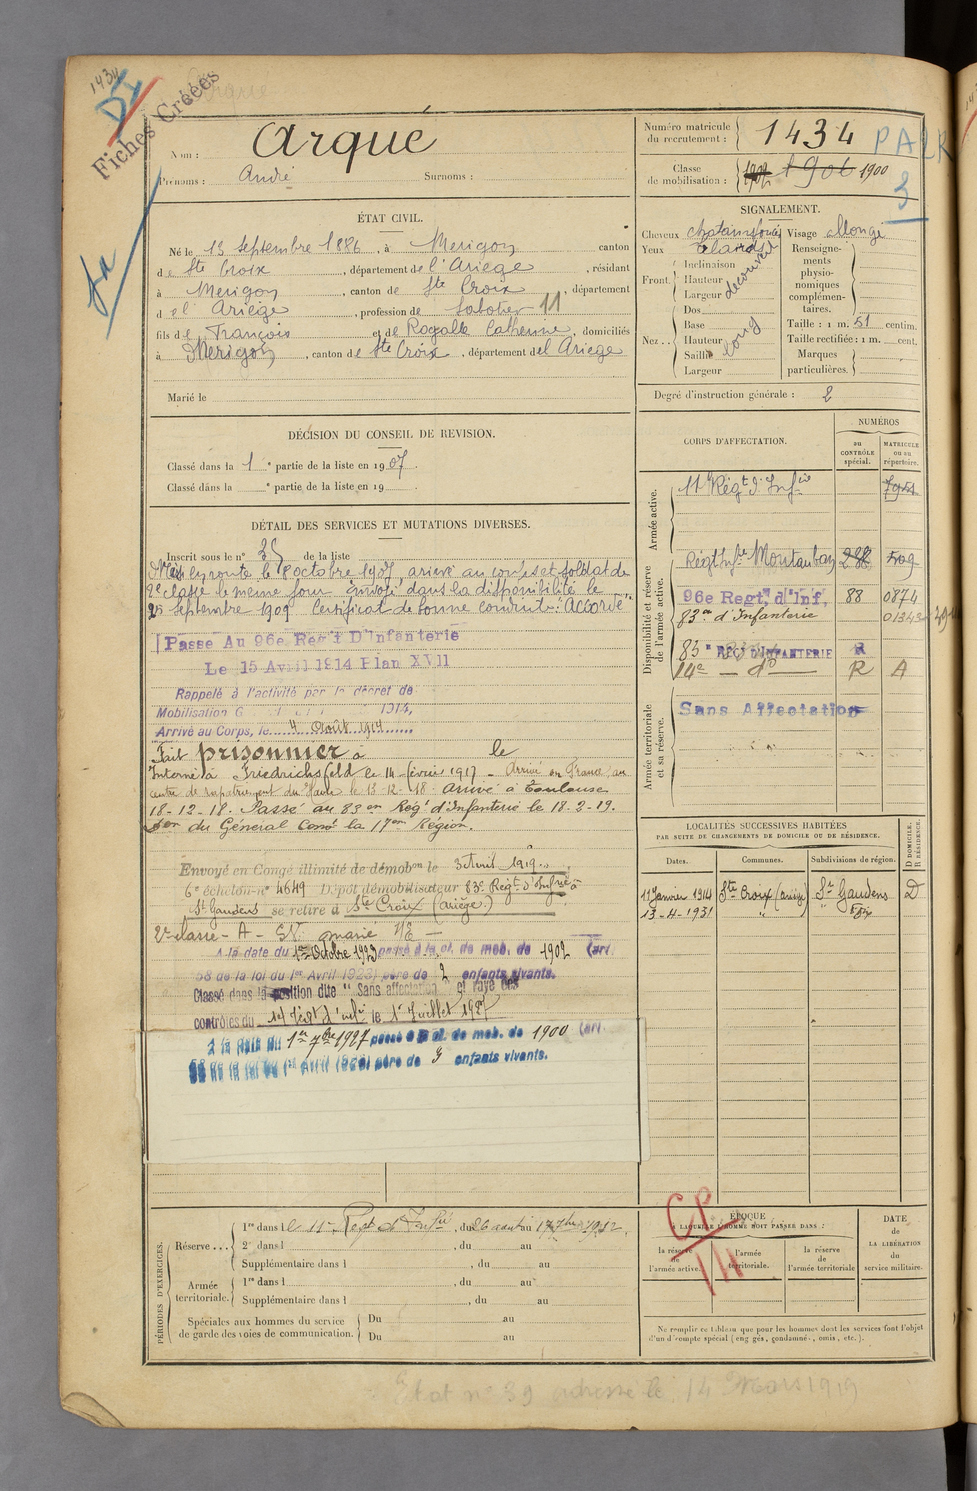 1434
Fiches Créées
Nom : Arqué
Prénoms : André Surnoms :
ÉTAT CIVIL.
Né le 13 Septembre 1886, à Merigon canton
de Ste Croix, département de l'Ariège, résidant
à Merigon, canton de Ste Croix, département
de l'Ariège, profession de Sabotier 11
fils de François et de Rogalle Catherine, domiciliés
à Merigon, canton de Ste Croix, département de l'Ariège
Marié le
DÉCISION DU CONSEIL DE REVISION.
Classé dans la 1e partie de la liste en 1907.
Classé dans la e partie de la liste en 19
DÉTAIL DES SERVICES ET MUTATIONS DIVERSES.
Inscrit sous le n° 25 de la liste
Mis en route le 8 octobre 1907, arrivé au corps et soldat de
2e classe le même jour envoyé dans la disponibilité le
25 septembre 1909 Certificat de bonne conduite : Accordé
Passé Au 96e Regt D'Infanterie
Le 15 Avril 1914 Plan XVII
Rappelé à l'activité par le décret de
Mobilisation G 1914,
Arrivé au Corps, le 4 Août 1914
Fait prisonnier à le
Interné à Friedrichsfeld le 14 février 1917 - Arrivé en France au
centre de rapatriement du Havre le 13-12-18 - arrivé à Toulouse
18-12-18. Passé au 83e Regt d'Infanterie le 18-2-19.
du Général Comt la 17em Région.
Envoyé en Congé illimité de démobon le 3 Avril 1919
6e échelon n° 4649 Dépôt démobilisateur 83e Regt d'Infrie à
St Gaudens se retire à Ste Croix (ariège)
2e classe - A - SN marié
A la date du 1er Octobre 1923 passé à la cl. de mob. de 1902 (art.
58 de la loi du 1er Avril 1923) père de 2 enfants vivants.
Classé dans la position dite "Sans affectation" et rayé des
contrôles du 14e Regt d'infie le 1er Juillet 1927
à la date du 1er 7bre 1927 passé à la cl. de mob. de 1900 (art.
58 de la loi du 1er Avril 1923) père de 3 enfants vivants.
PÉRIODES D'EXERCICES.
Réserve...
1re dans le 11e Regt d'Infie, du 26 aout au 17 7bre 1912.
2e dans l , du au
Supplémentaire dans l , du au
Armée territoriale.
1re dans l , du au
Supplémentaire dans l , du au
Spéciales aux hommes du service
de garde des voies de communication.
Du au
Du au
Numéro matricule
du recrutement : 1434 PALK
Classe
de mobilisation : 1906 1900
3
SIGNALEMENT.
Cheveux chatain foncé
Yeux clairs
Front. Inclinaison
Hauteur
Largeur
découvert
Nez.. Dos
Base
Hauteur
Saillie
Largeur
long
Visage allongé
Renseignements
physionomiques
complémentaires.
Taille : 1 m. 51 centim.
Taille rectifiée : 1 m. cent.
Marques
particulières.
Degré d'instruction générale : 2
CORPS D'AFFECTATION.
NUMÉROS
au CONTRÔLE spécial.
MATRICULE ou au répertoire.
Armée active.
11e Régt d'Infie
Disponibilité et réserve de l'armée active.
Régt Infie Montauban 509
96e Regt, d'Inf, 88 0874
83e d'Infanterie 01343
83e REGt D'INFANTERIE R
14e - do R A
Armée territoriale et sa réserve.
Sans Affectation
LOCALITÉS SUCCESSIVES HABITÉES
PAR SUITE DE CHANGEMENTS DE DOMICILE OU DE RÉSIDENCE.
Dates. Communes. Subdivisions de région. D DOMICILE. R RÉSIDENCE.
11 Janvier 1914 Ste Croix (ariège) St Gaudens D
13-4-1931 " "
CP
14
ÉPOQUE
À LAQUELLE L'HOMME DOIT PASSER DANS :
la réserve de l'armée active.
l'armée territoriale.
la réserve de l'armée territoriale
DATE DE LA LIBÉRATION du service militaire.
Ne remplir ce tableau que pour les hommes dont les services font l'objet
d'un décompte spécial (engagés, condamnés, omis, etc.).
Etat n° 39 adressé le 14 Mars 1919